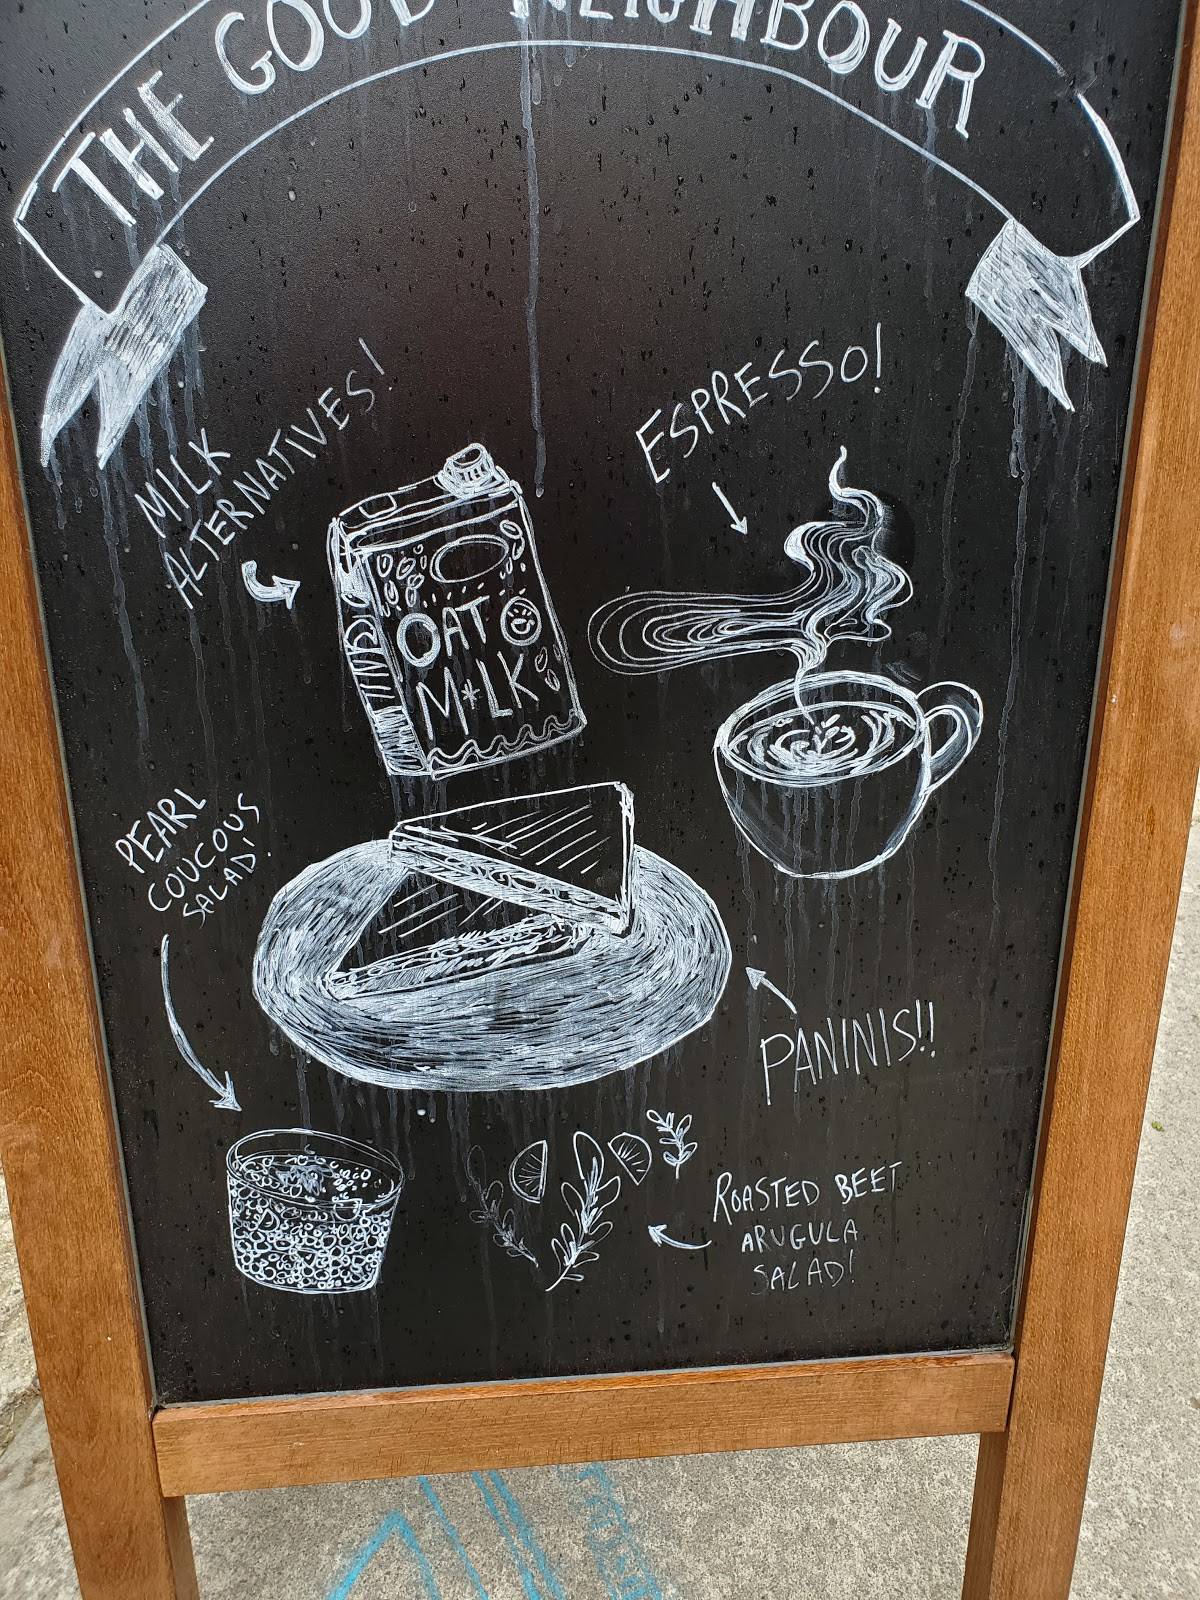 THE GOOD NEIGHBOUR
MILK
ALTERNATIVES!
ESPRESSO!
OAT
M*LK
PEARL
COUCOUS
SALAD!
PANINIS!!
ROASTED BEET
ARUGULA
SALAD!